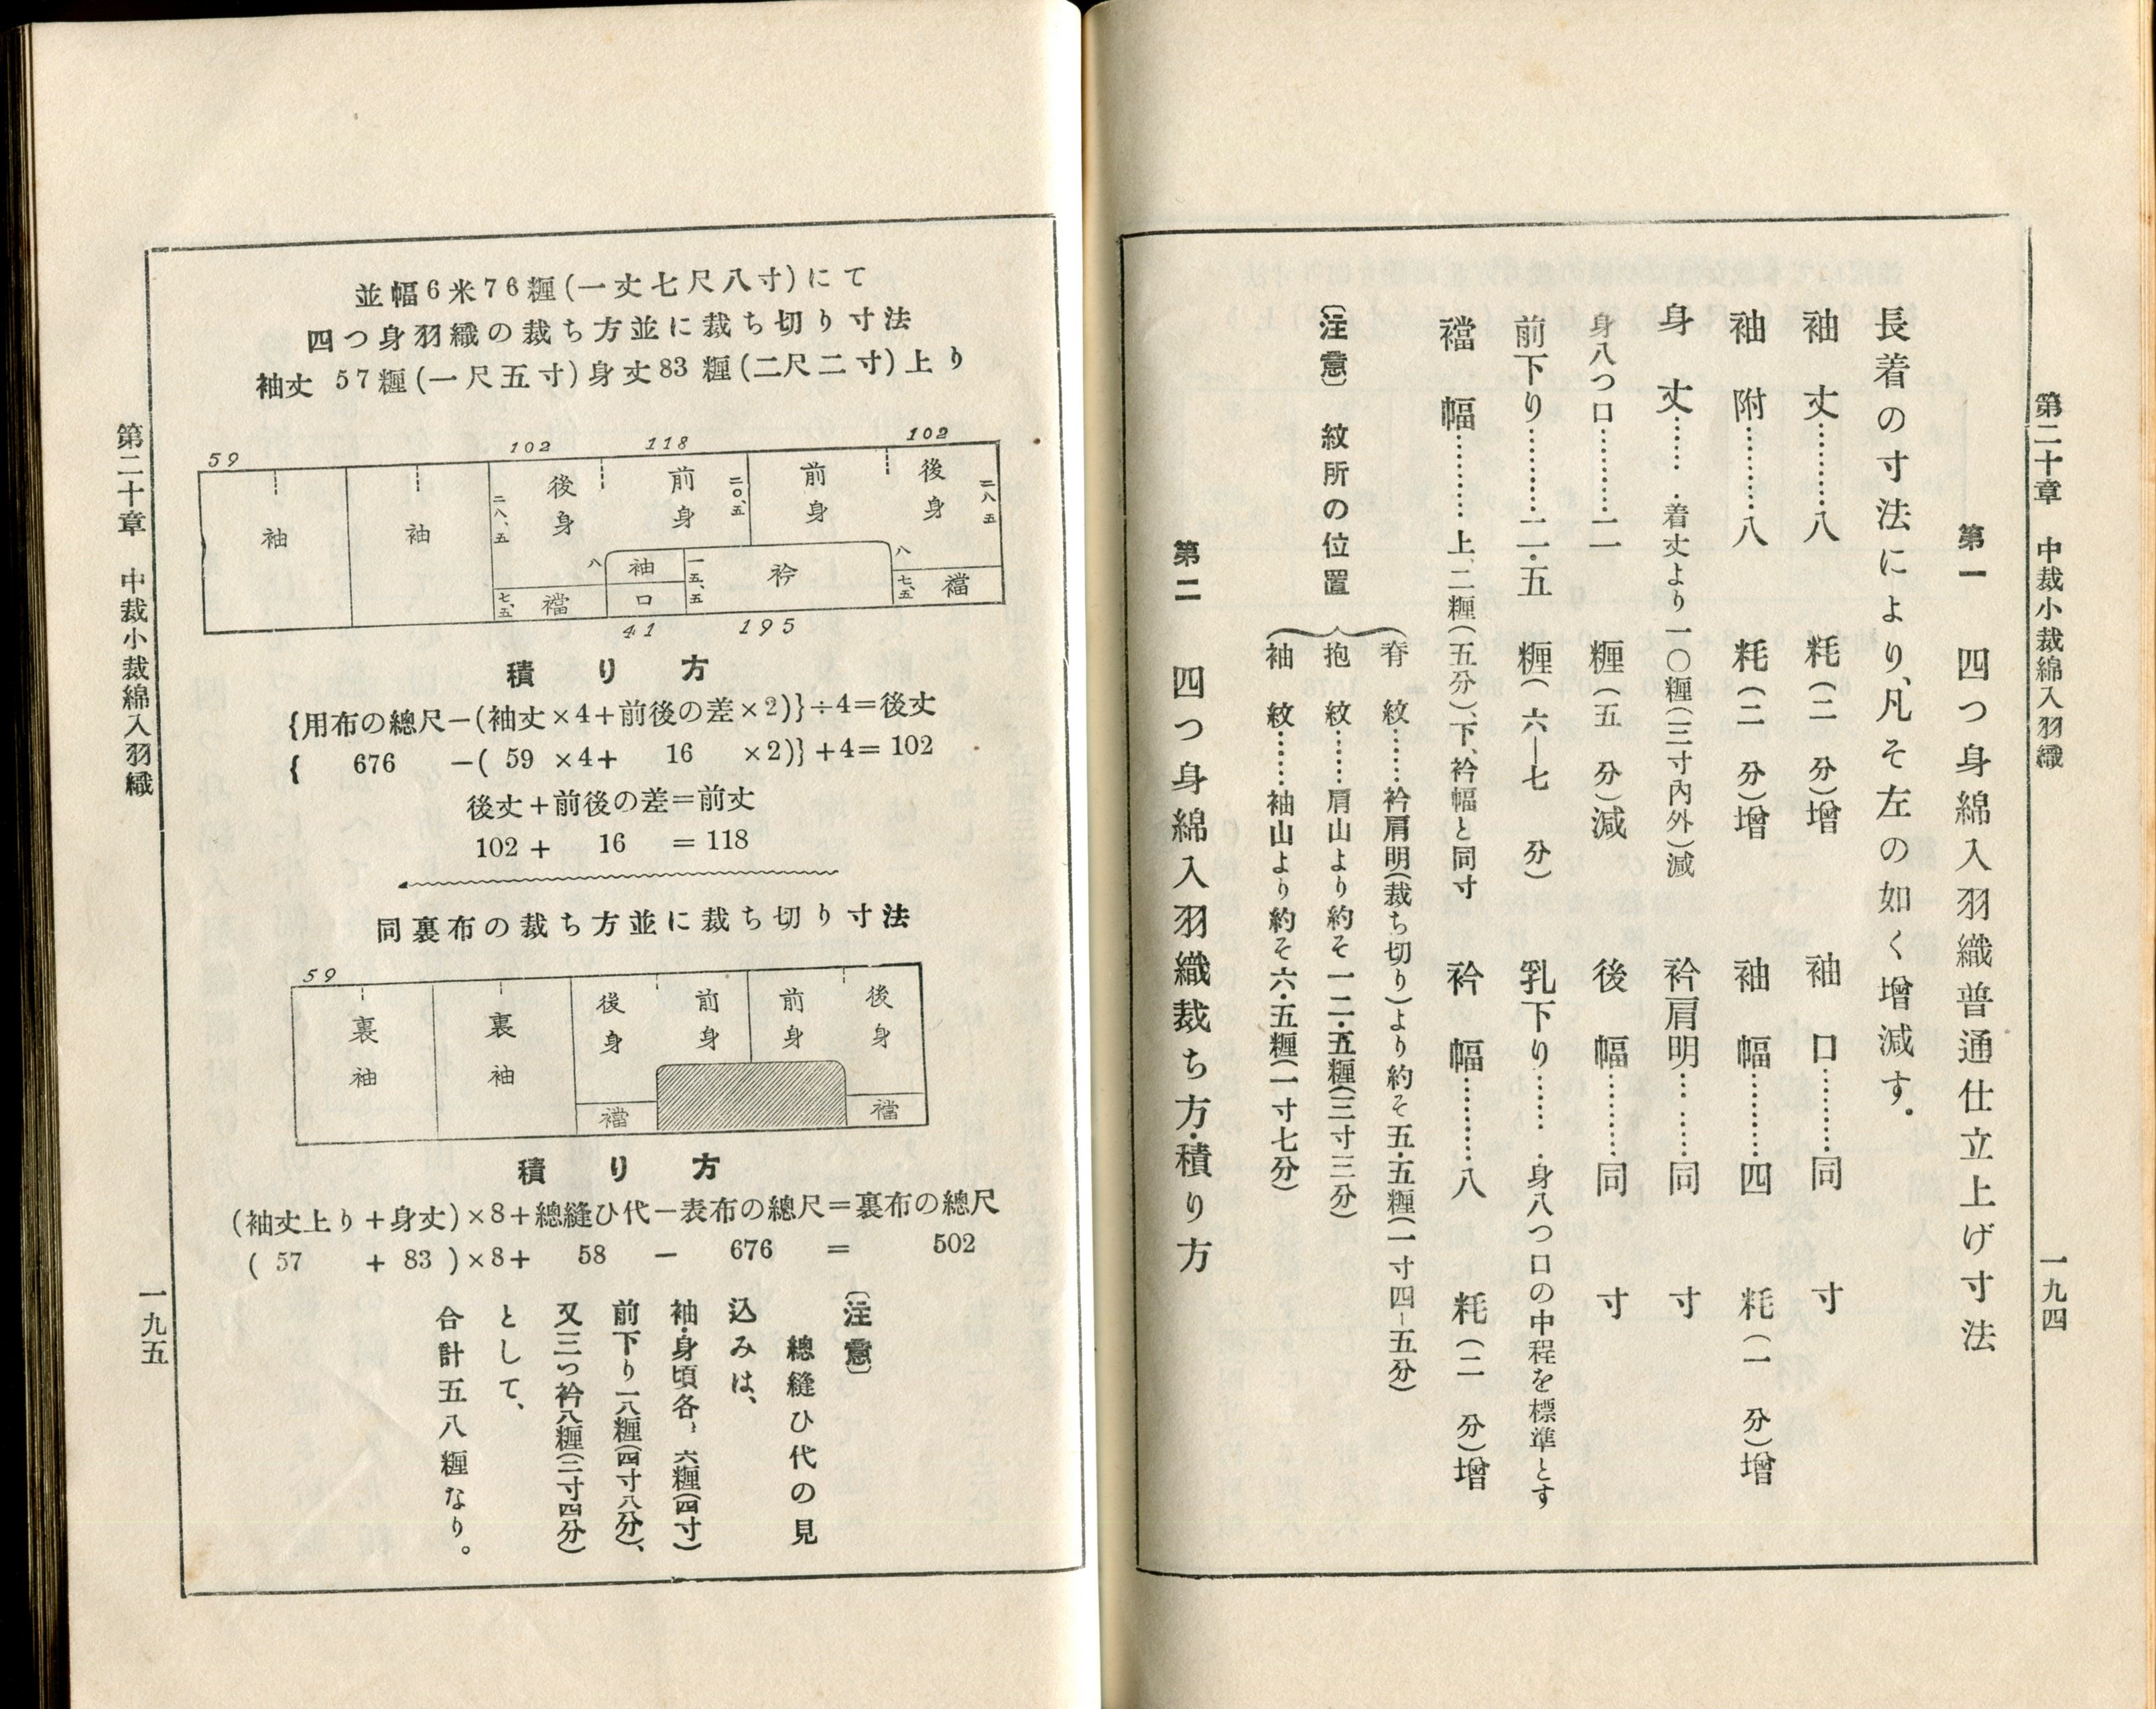 第二十章 中裁小裁綿入羽織
一九四
第一 四つ身綿入羽織普通仕立上げ寸法
長着の寸法により、凡そ左の如く増減す。
袖丈………八粍(二分)増 袖口………同寸
袖附………八粍(二分)増 袖幅………四粍(一分)増
身丈……着丈より一〇糎(三寸内外)減 衿肩明……同寸
身八つ口………二糎(五分)減 後幅………同寸
前下り………二・五糎(六—七分) 乳下り……身八つ口の中程を標準とす
襠幅………上、二糎(五分)、下、衿幅と同寸 衿幅………八粍(二分)増
〔注意〕 紋所の位置
脊紋……衿肩明(裁ち切り)より約そ五・五糎(一寸四-五分)
抱紋……肩山より約そ一二・五糎(三寸三分)
袖紋……袖山より約そ六・五糎(一寸七分)
第二 四つ身綿入羽織裁ち方・積り方
並幅6米76糎(一丈七尺八寸)にて
四つ身羽織の裁ち方並に裁ち切り寸法
袖丈 57糎(一尺五寸)身丈83糎(二尺二寸)上り
59 102 118 102
袖 袖 二八、五 後身 前身 二〇、五 前身 後身 二八、五
八 袖口 一五、五 衿 八
七、五 襠 七、五 襠
41 195
積り方
{用布の總尺−(袖丈×4+前後の差×2)}÷4=後丈
{ 676 −( 59 ×4+ 16 ×2)}+4=102
後丈+前後の差=前丈
102 + 16 = 118
同裏布の裁ち方並に裁ち切り寸法
59
裏袖 裏袖 後身 前身 前身 後身
襠 襠
積り方
(袖丈上り+身丈)×8+總縫ひ代−表布の總尺=裏布の總尺
( 57 + 83 )×8+ 58 − 676 = 502
〔注意〕
總縫ひ代の見
込みは、
袖・身頃各〻六糎(四寸)
前下り一八糎(四寸八分)、
又三つ衿八糎(二寸四分)
として、
合計五八糎なり。
第二十章 中裁小裁綿入羽織
一九五